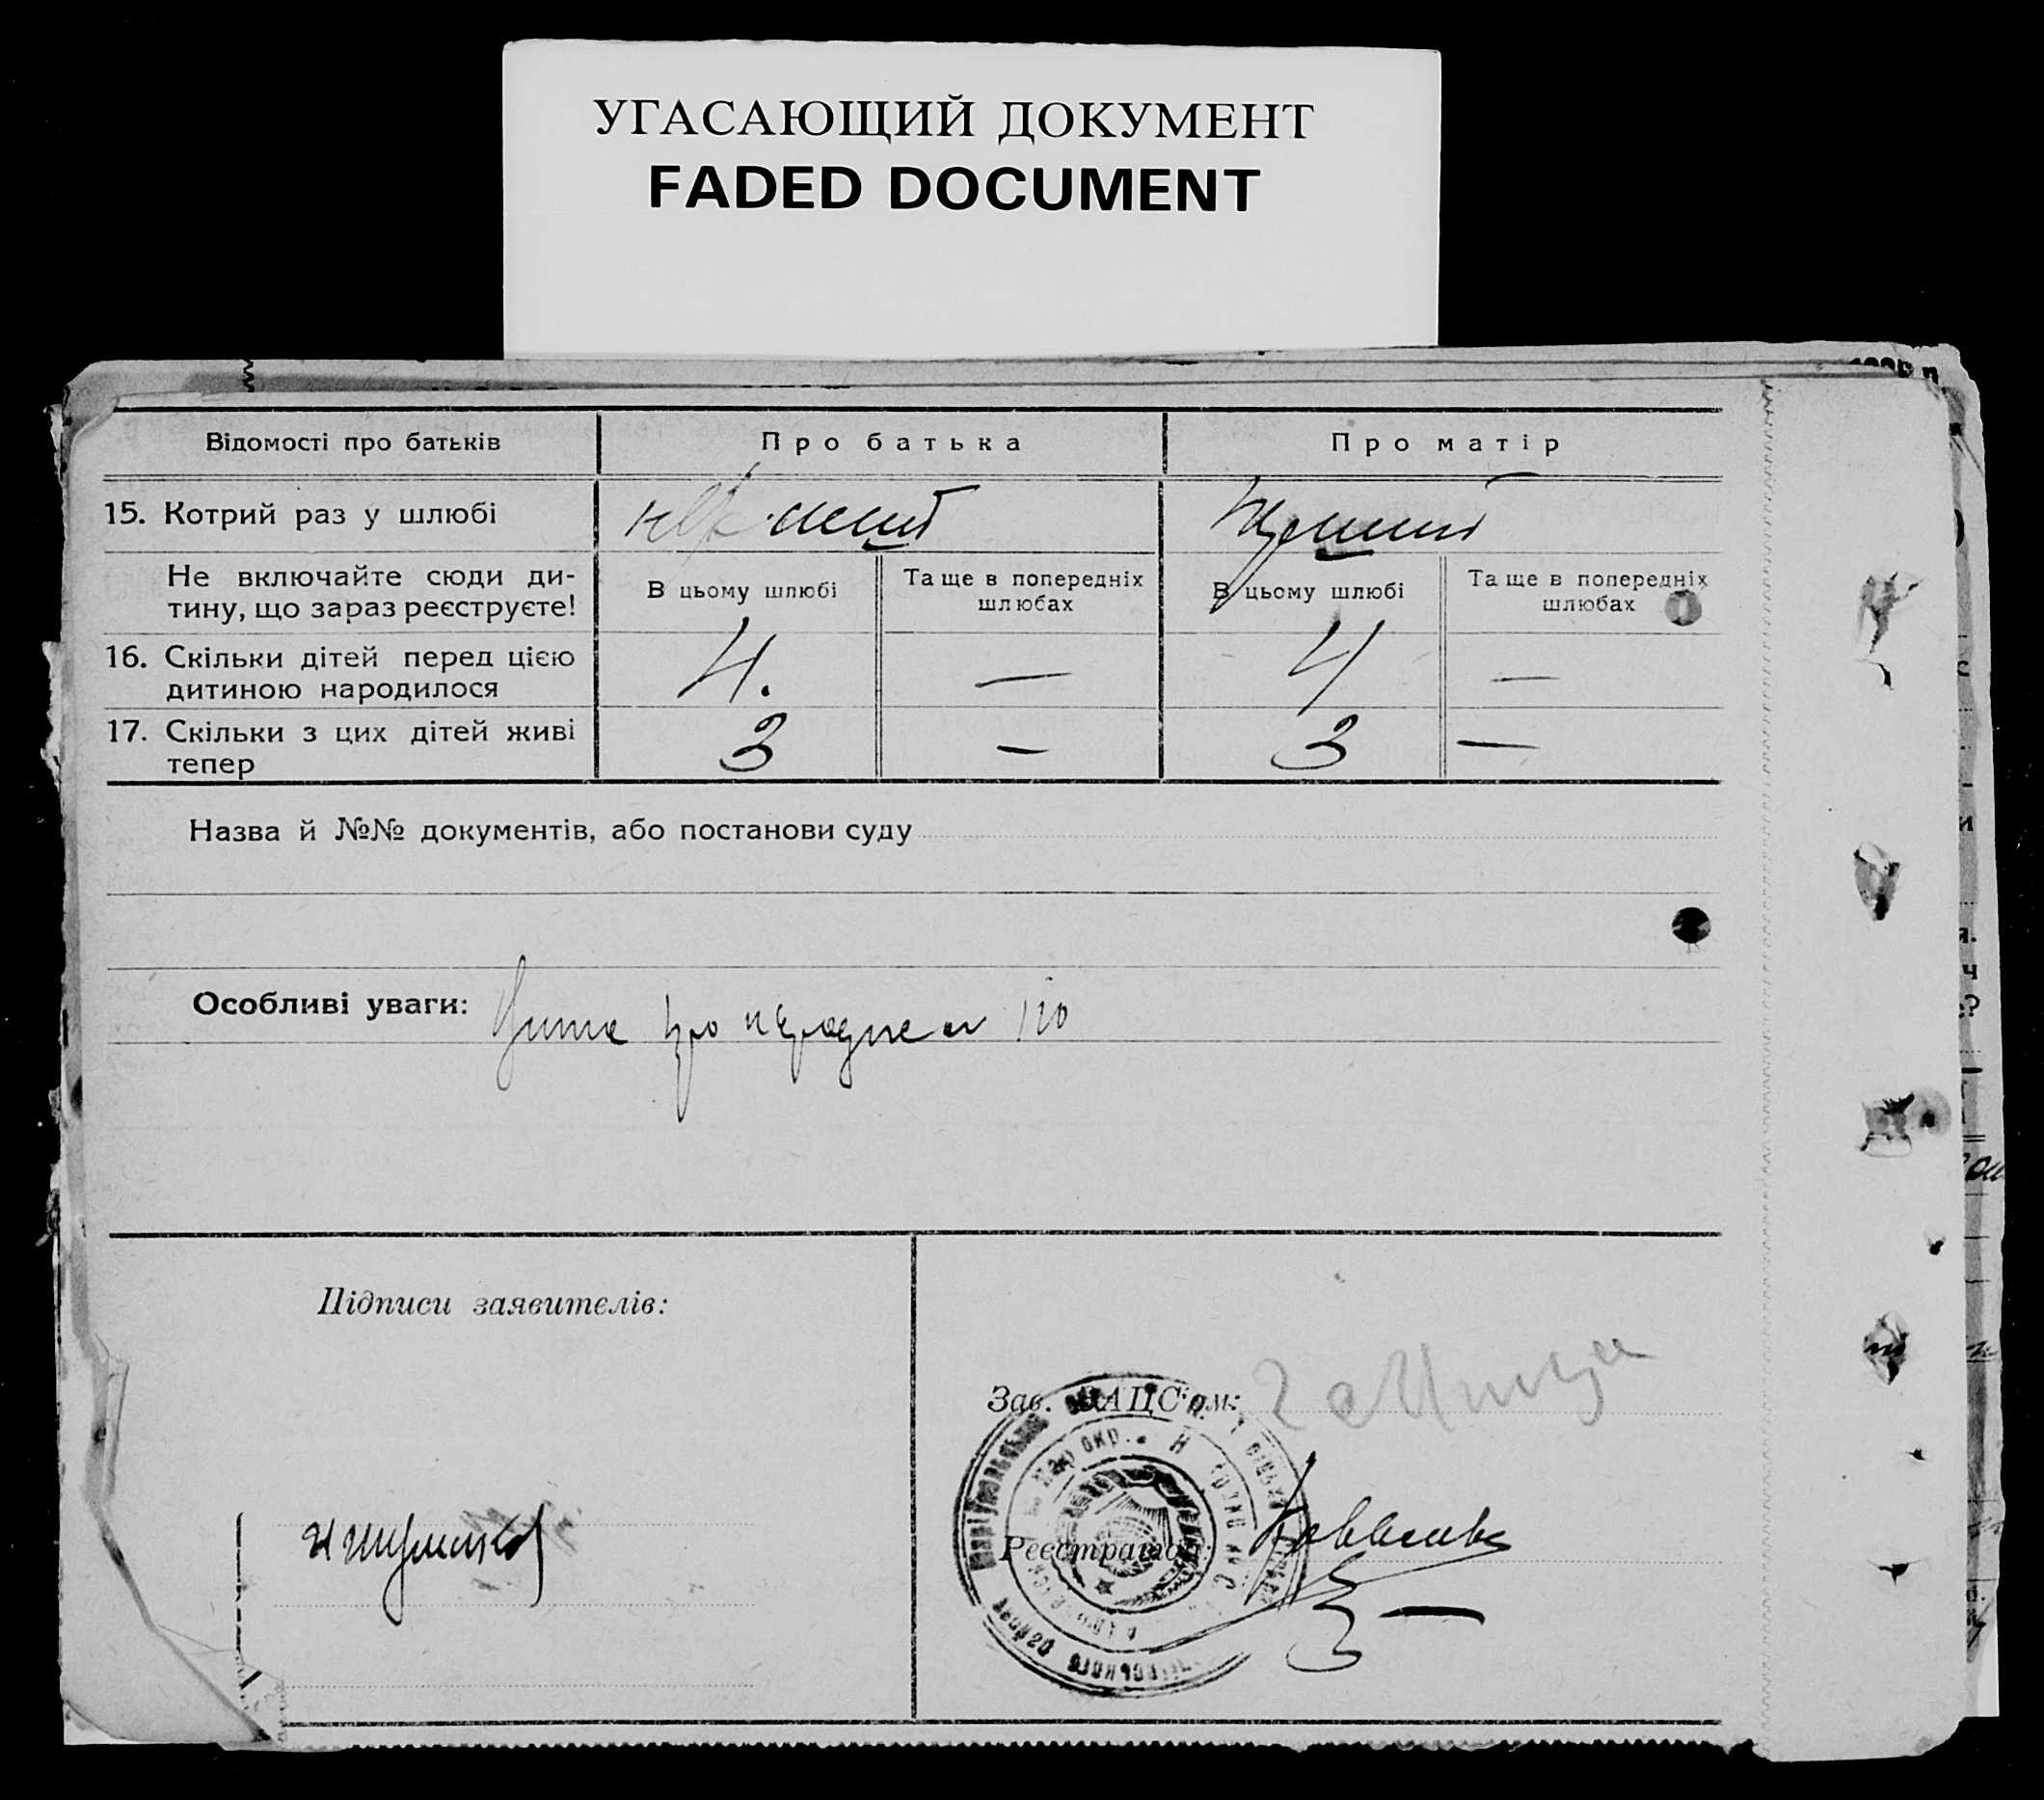 УГАСАЮЩИЙ ДОКУМЕНТ
FADED DOCUMENT
Відомості про батьків
Про батька
Про матір
15. Котрий раз у шлюбі
перший
Не включайте сюди ди-
тину, що зараз реєструєте!
В цьому шлюбі
Та ще в попередніх
шлюбах
В цьому шлюбі
Та ще в попередніх
шлюбах
16. Скільки дітей перед цією
дитиною народилося
4.
—
4
—
17. Скільки з цих дітей живі
тепер
3
—
3
—
Назва й №№ документів, або постанови суду
Особливі уваги:
про
Підписи заявителів:
Зав. ЗАЦС'ом:
Реєстратор: